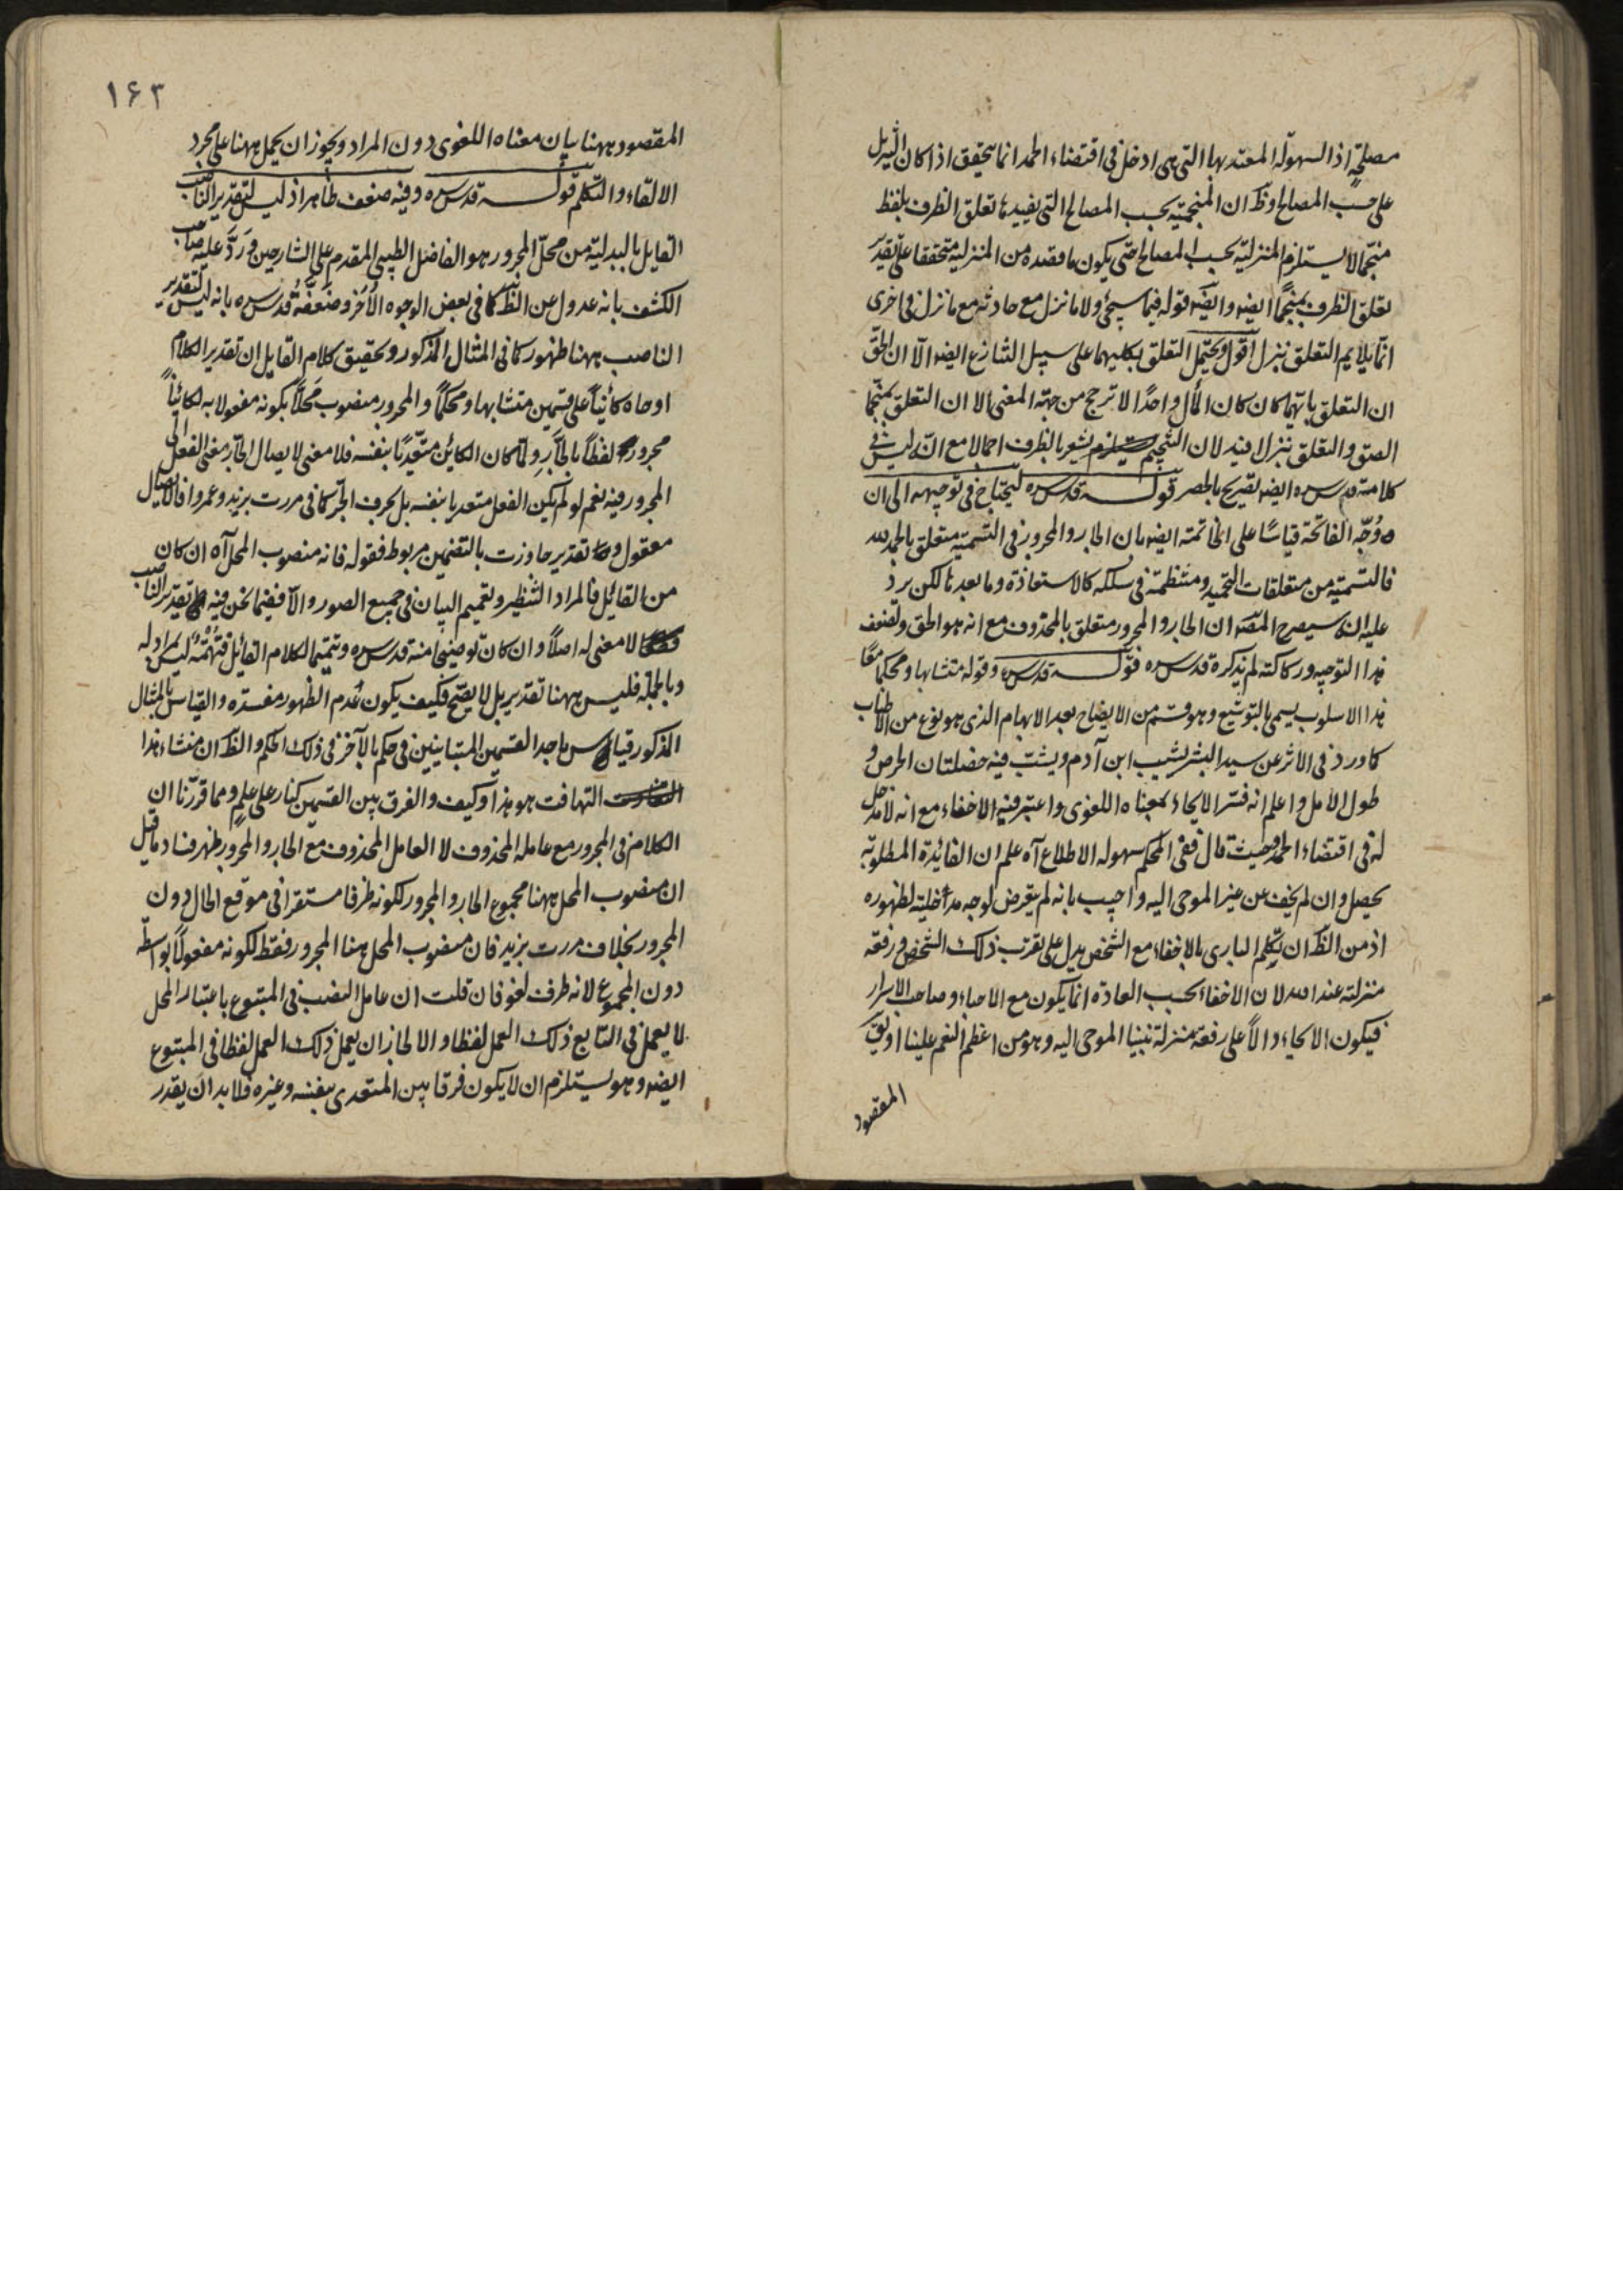 مصلحة اذ السهولة المعتد بها التى هى ادخل فى اقتضاء الحمد انما يتحقق اذا كان التنزيل
على حسب المصالح وظ ان المنجمية بحسب المصالح التى يفيدها تعلق الظرف بلفظ
منجما لا يستلزم المنزلية بحسب المصالح حتى يكون ما قصده من المنزلية متحققا على تقدير
تعلق الظرف بمنجماً ايضه وايضه قوله فيما سيجئ ولا ما نزل مع حادثة مع ما نزل فى اخرى
انما يلايم التعلق بنزل اقول ويحتمل التعلق بكليهما على سبيل التنازع ايضه الا ان الحق
ان التعلق بايهما كان كان المأل واحدًا لا ترجح من جهة المعنى الا ان التعلق بمنجما
الصق والتعلق بنزل افيد لان التنجيم يشعر بالظرف اجمالا مع انه ليس فى
كلامه قدس سره ايضه تصريح بالحصر قوله قدس سره ليحتاج فى توجيهه الى ان
وُجّه الفاتحة قياسًا على الخاتمة ايضه بان الجار والمجرور فى التسمية متعلق بالحمد لله
فالتسمية من متعلقات التحميد ومنتظمة فى سلكه كالاستعاذة وما بعدها لكن يرد
عليه انه سيصرح المصه ان الجار والمجرور متعلق بالمحذوف مع انه هو الحق ولضعف
هذا التوجيه وركاكته لم يذكره قدس سره قوله قدس سره وقوله متشابها ومحكما معًا
هذا الاسلوب يسمى بالتوشيع وهو قسم من الايضاح بعد الابهام الذى هو نوع من الاطناب
كما ورد فى الاثر عن سيد البشر يشيب ابن آدم ويشبّ فيه خصلتان الحرص و
طول الامل واعلم انه فسّر الايحاء بمعناه اللغوى واعتبر فيه الاخفاء مع انه لا مدخل
له فى اقتضاء الحمد وحيث قال ففى المحكم سهولة الاطلاع آه علم ان الفائدة المطلوبة
يحصل وان لم يخف عن غير الموحى اليه واجيب بانه لم يتعرض لوجه مدخليته لظهوره
اذ من الظ ان تكلم البارى بالاخفاء مع الشخص يدل على تقرب ذلك الشخص ورفعة
منزلته عند الله لان الاخفاء بحسب العادة انما يكون مع الاحباء وصاحب الاسرار
فيكون الايحاء دالاً على رفعة منزلة نبينا الموحى اليه وهو من اعظم النعم علينا او يق
المقصود
١۶٣
المقصود ههنا بيان معناه اللغوى دون المراد ويجوز ان يحمل ههنا على مجرد
الالقاء والتكلم قوله قدس سره وفيه ضعف ظاهر اذ ليس لتقدير الناصب
القايل بالبدلية من محلّ المجرور هو الفاضل الطيبى المقدم على الشارحين وَرَدَّ عليه صاحب
الكشف بانه عدول عن الظ كما فى بعض الوجوه الأُخَر وضَعَّفَهُ قدس سره بانه ليس لتقدير
الناصب ههنا ظهور كما فى المثال المذكور وتحقيق كلام القايل ان تقدير الكلام
اوحاه كائناً على قسمين متشابها ومحكماً والمجرور منصوب مَحَلّاً بكونه مفعولا به لكائناً
مجرور لفظاً بالجارّ ولما كان الكاين متعدّيًا بنفسه فلا معنى لايصال الجار معنى الفعل الى
المجرور فيه نعم لو لم يكن الفعل متعديا بنفسه بل بحرف الجر كما فى مررت بزيد وعمروا فالايصال
معقول و تقدير جاوزت بالتضمين مربوط فقوله فانه منصوب المحل آه ان كان
من القائل فالمراد التنظير وتعميم البيان فى جميع الصور والا ففيما نحن فيه تقدير الناصب
لا معنى له اصلاً وان كان توضيحا منه قدس سره وتتميما لكلام القائل فتَهْمُةٌ ليس مراد له
وبالجملة فليس ههنا تقدير بل لا يصح فكيف يكون عُدم الظهور مفسدة والقياس بالمثال
المذكور قياس باحد القسمين المتباينين فى حكم بالآخر فى ذلك الحكم والظ ان منشاء هذا
التهافت هو هذا وكيف والفرق بين القسمين كنار على علمٍ ومما قرّرنا ان
الكلام فى المجرور مع عامله المحذوف لا العامل المحذوف مع الجار والمجرور ظهر فساد ما قيل
ان منصوب المحل ههنا مجموع الجار والمجرور لكونه ظرفا مستقرا فى موقع الحال دون
المجرور بخلاف مررت بزيد فان منصوب المحل هنا المجرور فقط لكونه مفعولاً بواسطة
دون المجموع لانه ظرف لغو فان قلت ان عامل النصب فى المتبوع باعتبار المحل
لا يعمل فى التابع ذلك العمل لفظا والا لجاز ان يعمل ذلك العمل لفظا فى المتبوع
ايضه وهو يستلزم ان لا يكون فرقا بين المتعدى بنفسه وغيره فلا بد ان يقدر